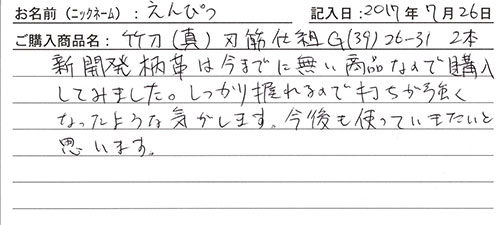 お名前(ニックネーム):えんぴつ 記入日:2017年7月26日
ご購入商品名:竹刀(真)刃筋仕組G(39)26-31 2本
新開発柄革は今までに無い商品なので購入
してみました。しっかり握れるので打ちが強く
なったような気がします。今後も使っていきたいと
思います。